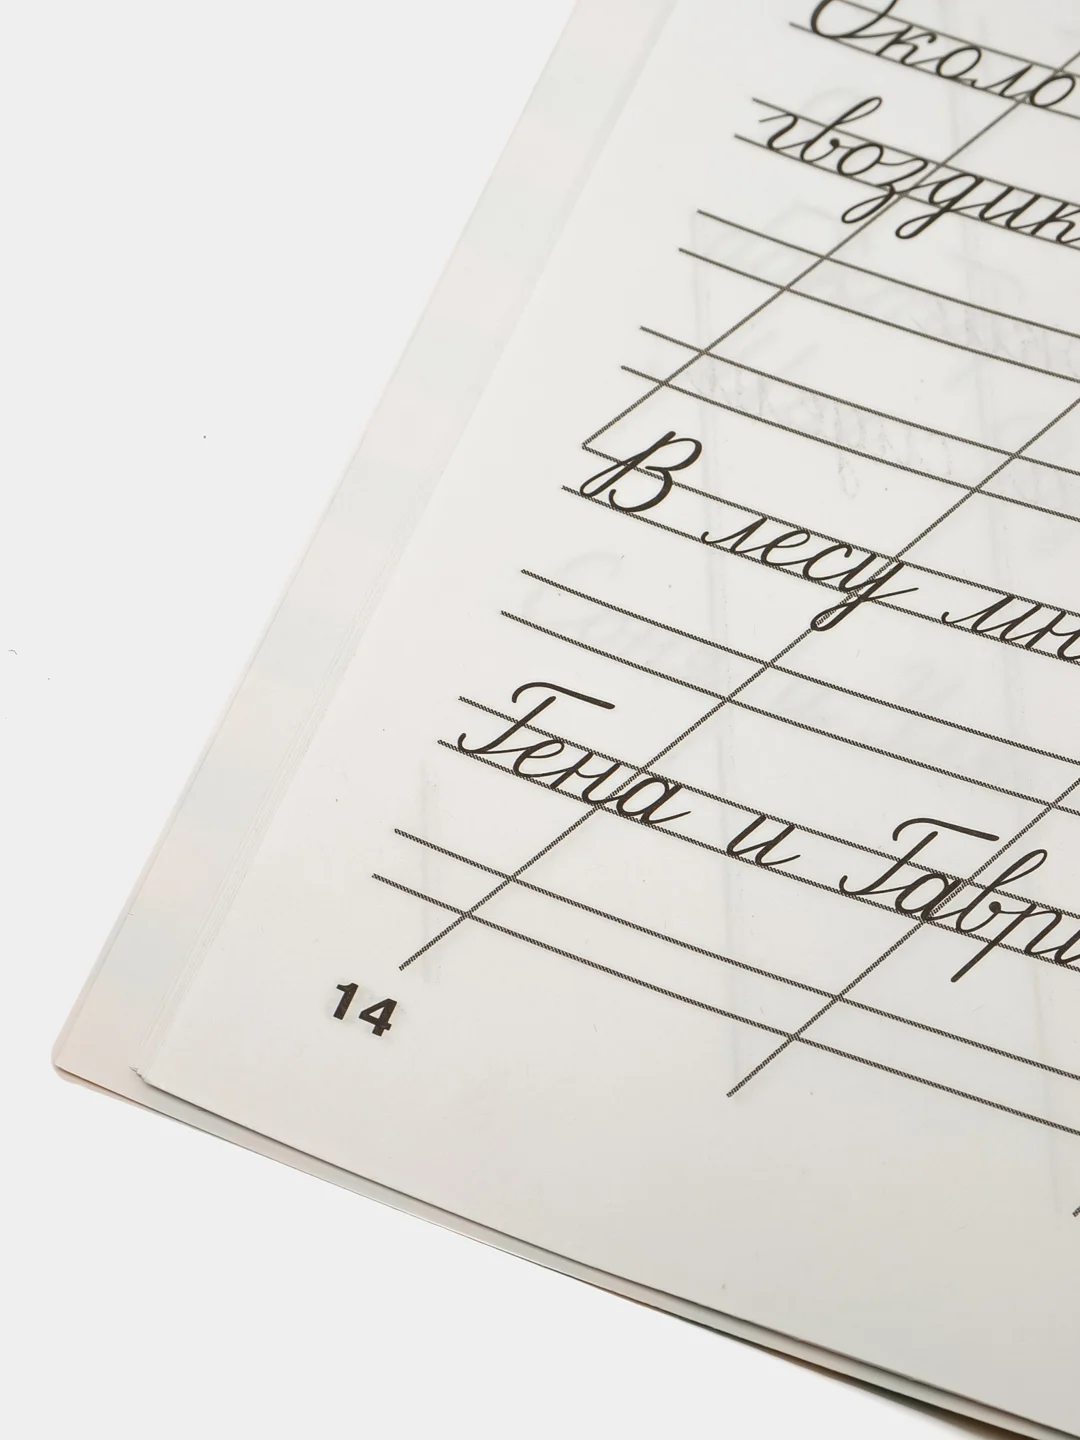 Около
гвоздик
В лесу мн
Гена и Гаври
14